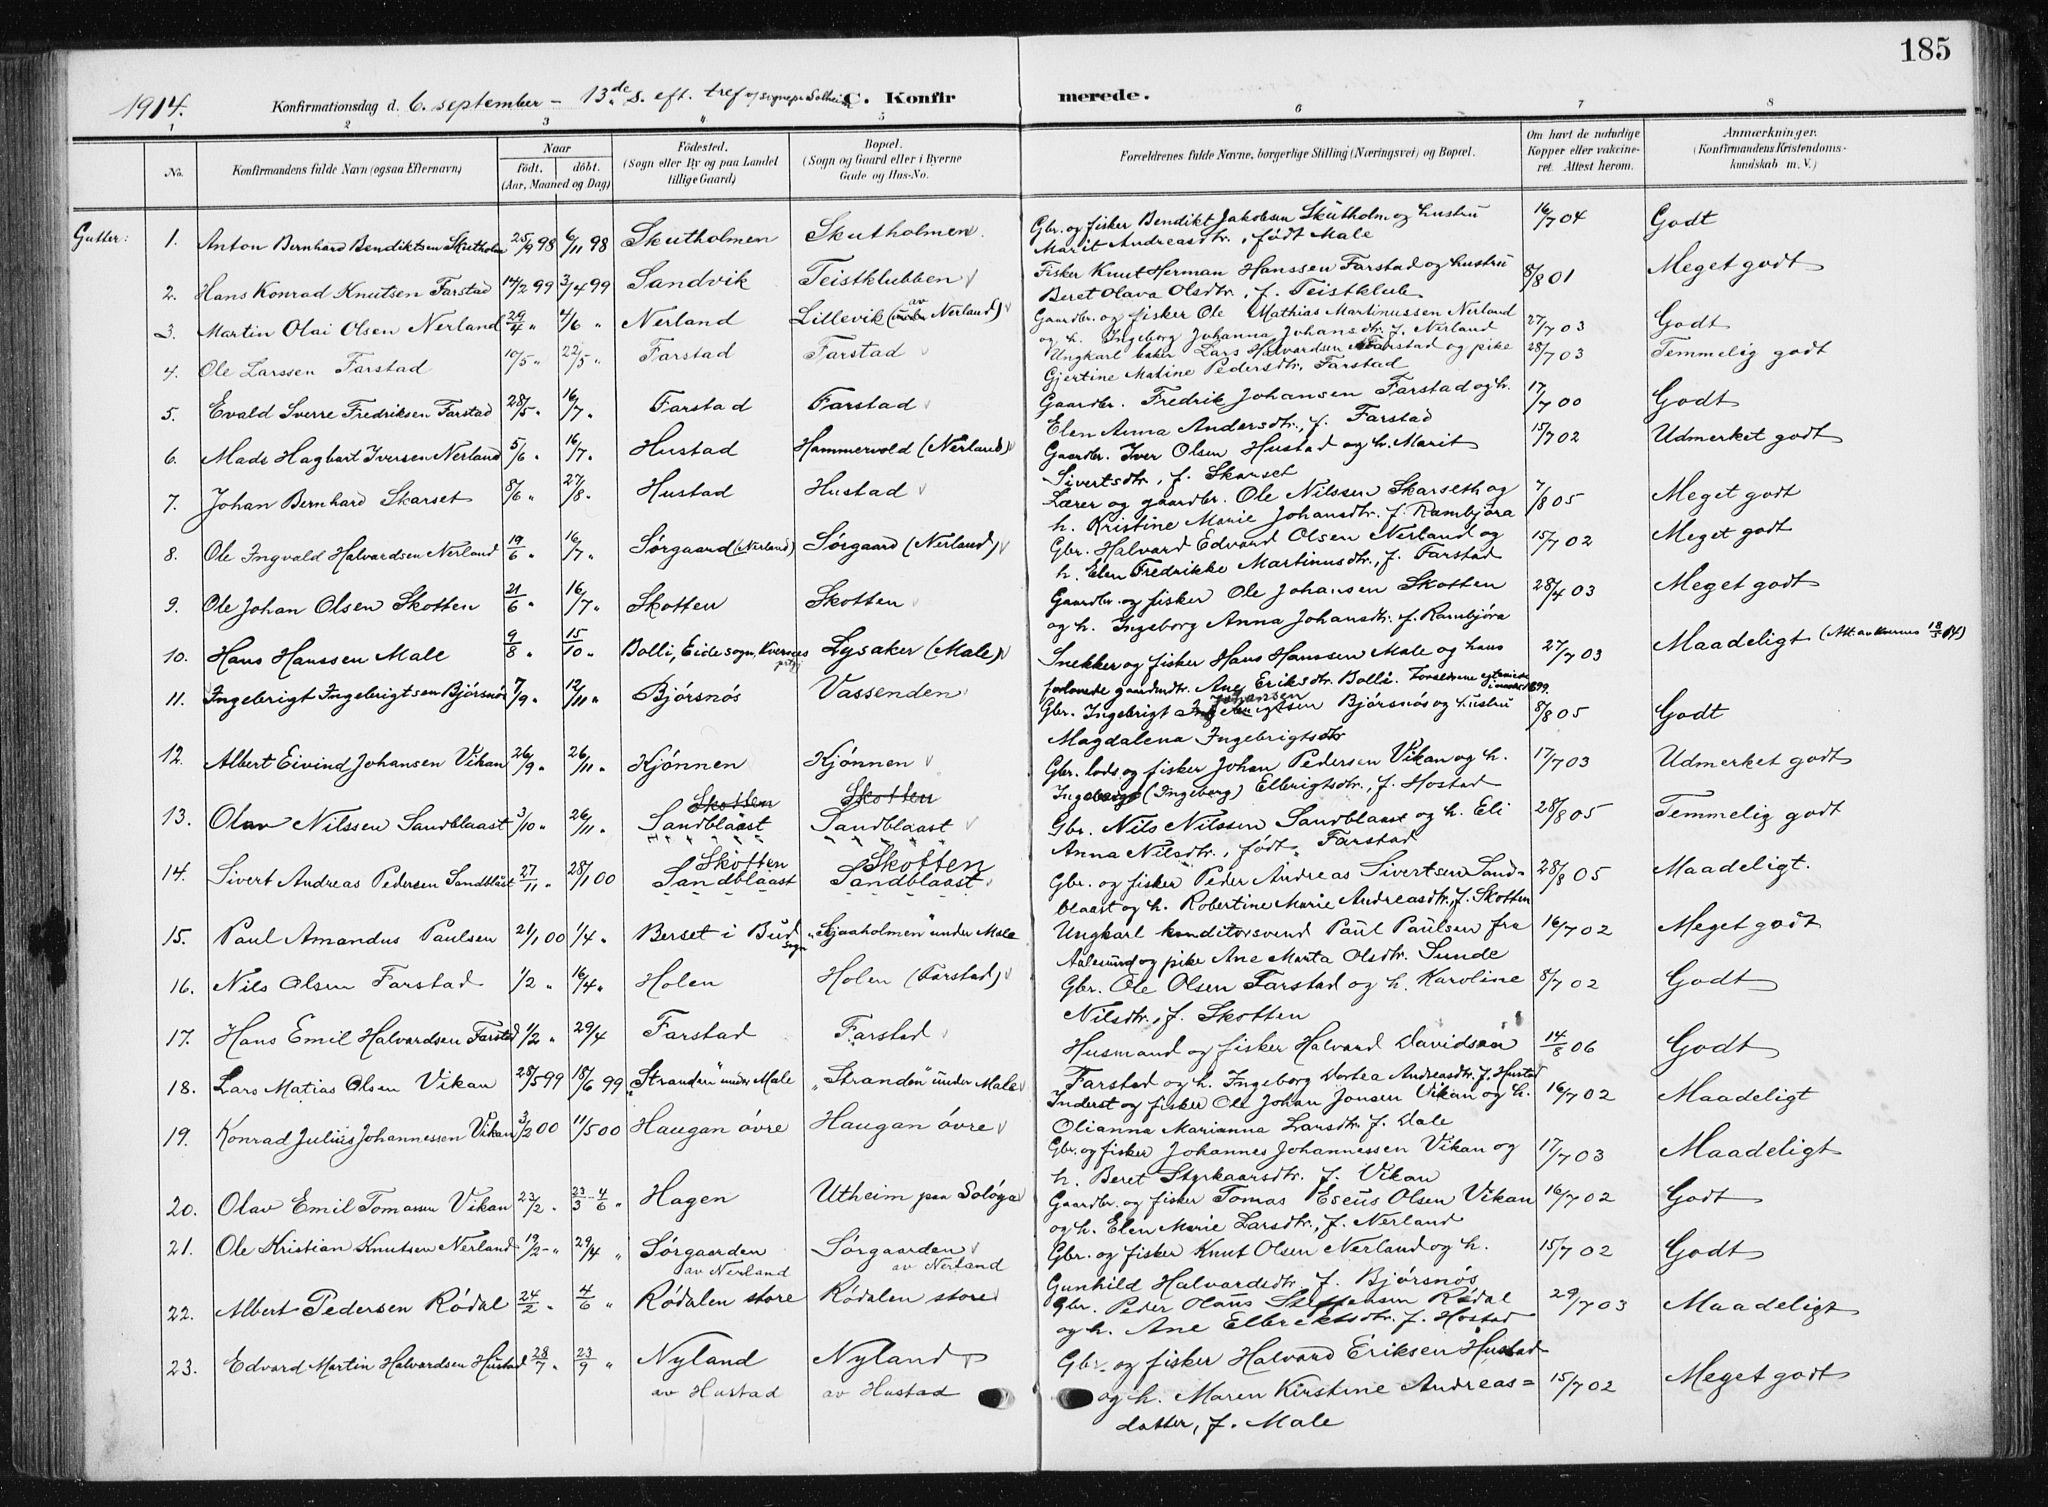 185
1914. Konfirmationsdag d. 6. september - 13de s. eft. tref v/ sognepr. Solheim C. Konfirmerede.
1 2 3 4 5 6 7 8
No. Konfirmandens fulde Navn (ogsaa Efternavn) Naar født. døbt. (Aar, Maaned og Dag) Fødested. (Sogn eller By og paa Landet tillige Gaard) Bopæl. (Sogn og Gaard eller i Byerne Gade og Hus-No. Forældrenes fulde Navne, borgerlige Stilling (Næringsvei) og Bopæl. Om havt de naturlige Kopper eller vakcineret. Attest herom. Anmærkninger. (Konfirmandens Kristendomskundskab m. V.)
Gutter: 1. Anton Bernhard Bendiktsen Skutholm 25/9 98 6/11 98 Skutholmen Skutholmen. Gbr. og fisker Bendikt Jakobsen Skutholm og hustru 16/7 04 Godt
Marit Andreasdtr., født Male
2. Hans Konrad Knutsen Farstad 14/2 99 3/4 99 Sandvik Teistklubben Fisker Knut Herman Hanssen Farstad og hustru 8/8 01 Meget godt
Beret Olava Olsdtr., f. Teistklub
3. Martin Olai Olsen Nerland 29/4 " 4/6 " Nerland Lillevik (av Nerland) Gaardbr. og fisker Ole Mathias Martinussen Nerland 27/7 03 Godt
og h. Ingeborg Johanna Johansdtr. f. Nerland
4. Ole Larssen Farstad 10/5 " 22/5 " Farstad Farstad Ungkarl baker Lars Halvardsen Farstad og pike 28/7 03 Temmelig godt
Gjertine Matine Pedersdtr., Farstad
5. Evald Sverre Fredriksen Farstad 28/5 " 16/7 " Farstad Farstad Gaardbr. Fredrik Johansen Farstad og h. 17/7 00 Godt
Elen Anna Andersdtr., f. Farstad
6. Mads Hagbart Iversen Nerland 5/6 " 16/7 " Hustad Hammervold (Nerland) Gaardbr. Iver Olsen Hustad og h. Marit 15/7 02 Udmerket godt
Sivertsdtr., f. Skarset
7. Johan Bernhard Skarset 8/6 " 27/8 " Hustad Hustad Lærer og gaardbr. Ole Nilssen Skarseth og 7/8 05 Meget godt
h. Kristine Marie Johansdtr. f. Rambjøra
8. Ole Ingvald Halvardsen Nerland 19/6 " 16/7 " Sørgaard (Nerland) Sørgaard (Nerland) Gbr. Halvard Edvard Olsen Nerland og 15/7 02 Meget godt
h. Elen Fredrikke Martinusdtr., f. Farstad
9. Ole Johan Olsen Skotten 21/6 " 16/7 " Skotten Skotten Gaardbr. og fisker Ole Johansen Skotten 28/4 03 Meget godt
og h. Ingeborg Anna Johansdtr. f. Rambjøra
10. Hans Hanssen Male 9/8 " 15/10 " Bolli, Eide sogn, Kvernes prgj Lysaker (Male) Snekker og fisker Hans Hanssen Male og hans 27/7 03 Maadeligt
forlovede gaardmdtr. Ane Eriksdtr. Bolli.
11. Ingebrigt Ingebrigtsen Bjørsnøs 7/9 " 12/11 " Bjørsnøs Vassenden Gbr. Ingebrigt Johansen Bjørsnøs og hustru 8/8 05 Godt
Magdalena Ingebrigtsdtr
12. Albert Eivind Johansen Vikan 26/9 " 26/11 " Kjønnen Kjønnen Gbr. lods og fisker Johan Pedersen Vikan og h. 17/7 03 Udmerket godt
(Ingeborg) Ellbrigtsdtr., f. Hostad
13. Olav Nilssen Sandblaast 3/10 " 26/11 " Skotten Sandblaast Skotten Sandblaast Gbr. Nils Nilssen Sandblaast og h. Eli 28/8 05 Temmelig godt
Anna Nilsdtr., født Farstad
14. Sivert Andreas Pedersen Sandblåst 27/11 " 28/1 00 Skotten Sandblaast Skotten Sandblaast Gbr. og fisker Peder Andreas Sivertsen Sand- 28/8 05 Maadeligt.
blaast og h. Robertine Marie Andreasdtr., f. Skotten
15. Paul Amandus Paulsen 21/1 00 1/4 " Berset i Bud sogn "Sjaaholmen" under Male Ungkarl konditorsvend Paul Paulsen fra 16/7 02 Meget godt
Aalesund og pike Ane Marta Olsdtr. Sunde
16. Nils Olsen Farstad 1/2 " 16/4 " Holen Holen (Farstad) Gbr. Ole Olsen Farstad og h. Karoline 8/7 02 Godt
Nilsdtr., f. Skotten
17. Hans Emil Halvardsen Farstad 1/2 " 29/4 Farstad Farstad Husmand og fisker Halvard Davidsen 14/8 06 Godt
Farstad og h. Ingeborg Dortea Andreasdtr. f. Hustad
18. Lars Matias Olsen Vikan 28/5 99 18/6 99 "Stranden" under Male "Stranden" under Male Inderst og fisker Ole Johan Jonsen Vikan og h. 16/7 02 Maadeligt
Olianna Marianna Larsdtr. f. Dale
19. Konrad Julius Johannessen Vikan 3/2 00 11/5 00 Haugan øvre Haugan øvre Gbr. og fisker Johannes Johannessen Vikan og 17/7 03 Maadeligt
h. Beret Styrkaarsdtr. f. Vikan
20. Olav Emil Tomassen Vikan 23/2 " 23/3 - 4/6 " Hagen Utheim paa Soløya Gaardbr. og fisker Tomas Eseus Olsen Vikan 16/7 02 Godt
og h. Elen Marie Larsdtr., f. Nerland
21. Ole Kristian Knutsen Nerland 19/2 - " 29/4 " Sørgaarden av Nerland Sørgaarden av Nerland Gbr. og fisker Knut Olsen Nerland og h. 15/7 02 Godt
Gunhild Halvardsdtr. f. Bjørsnøs
22. Albert Pedersen Rødal 24/2 " 4/6 " Rødalen store Rødalen store Gbr. Peder Olaus Steffensen Rødal 29/7 03 Maadeligt
og h. Ane Ellbriktsdtr. f. Hostad
23. Edvard Martin Halvardsen Hustad 28/7 " 23/9 " Nyland av Hustad Nyland av Hustad Gbr. og fisker Halvard Eriksen Hustad 15/7 02 Meget godt
og h. Maren Kirstine Andreas=
datter, f. Male